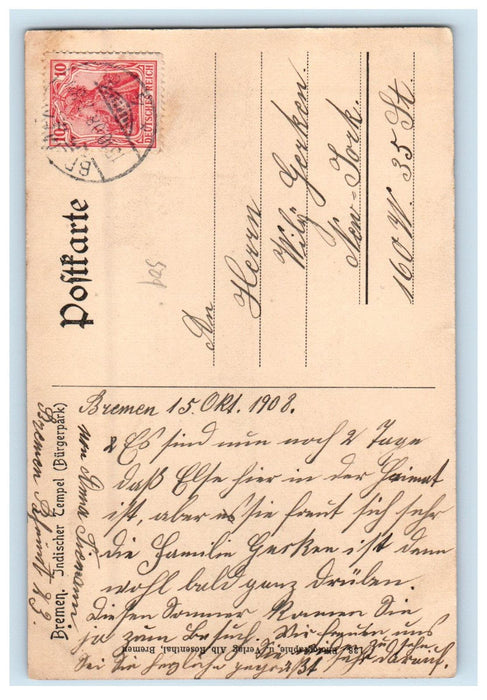 10 10
DEUTSCHES REICH
Postkarte
An
Herrn
Wilh Gerken.
New-York.
160 W. 35 St.
Bremen. Indischer Tempel (Bürgerpark)
Bremen 15. Okt. 1908.
Es sind nun noch 2 Tage
daß Else hier in der Heimat
ist, aber sie freut sich sehr
die Familie Gerken ist dann
wohl bald ganz drüben.
Diesen Sommer kamen Sie
ja zum Besuch. Wir freuen uns
zu sehr
Sei Sie herzlichst gegrüßt sehr darauf.
von Anna
Bremen 23.
128 Photographie u. Verlag Alb. Rosenthal, Bremen